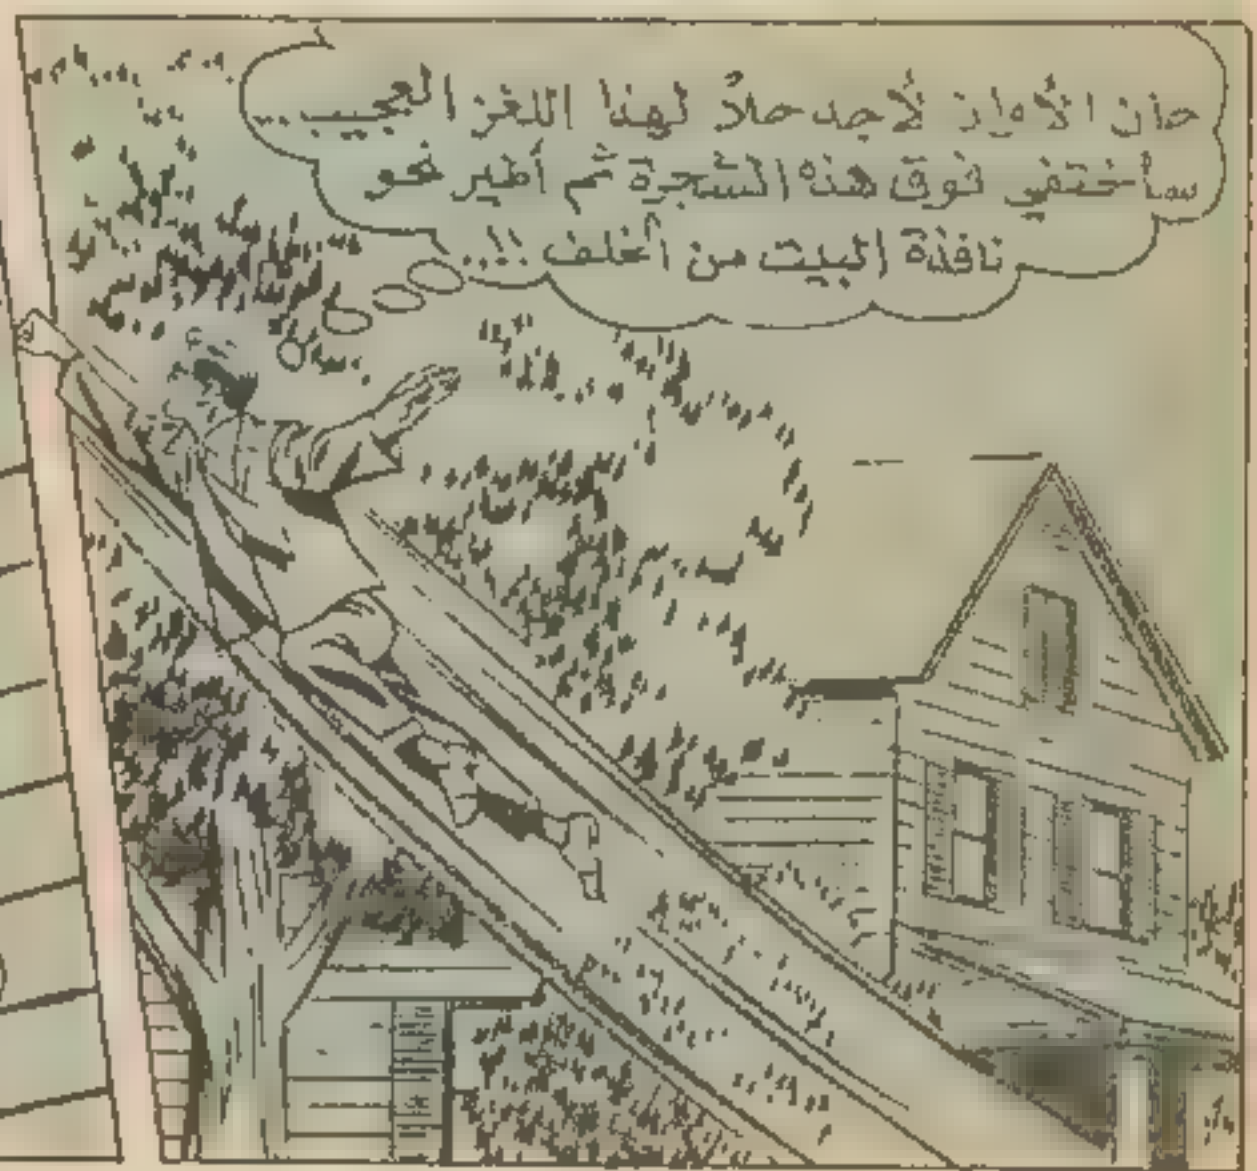 حان الأوان لأجد حلاً لهذا اللغز العجيب...
سأختفي فوق هذه الشجرة ثم أطير نحو
نافذة البيت من الخلف !!..